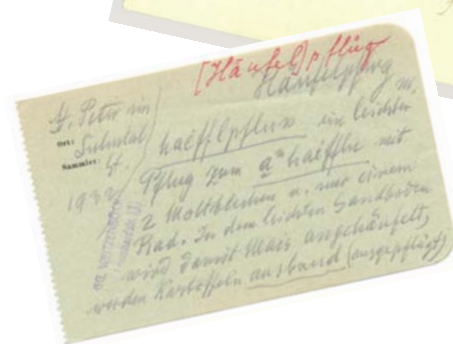 [Häufel]pflug
Häufelpflug m.
St. Peter im
Ort: Sulmtal
Sammler: St.
1933
haefflpflux ein leichter
Pflug zum a haeffln mit
2 Moltblechen u. nur einem
Rad. In dem leichten Sandboden
wird damit Mais angehäufelt,
werden Kartoffeln ausbaud (ausgepflügt)